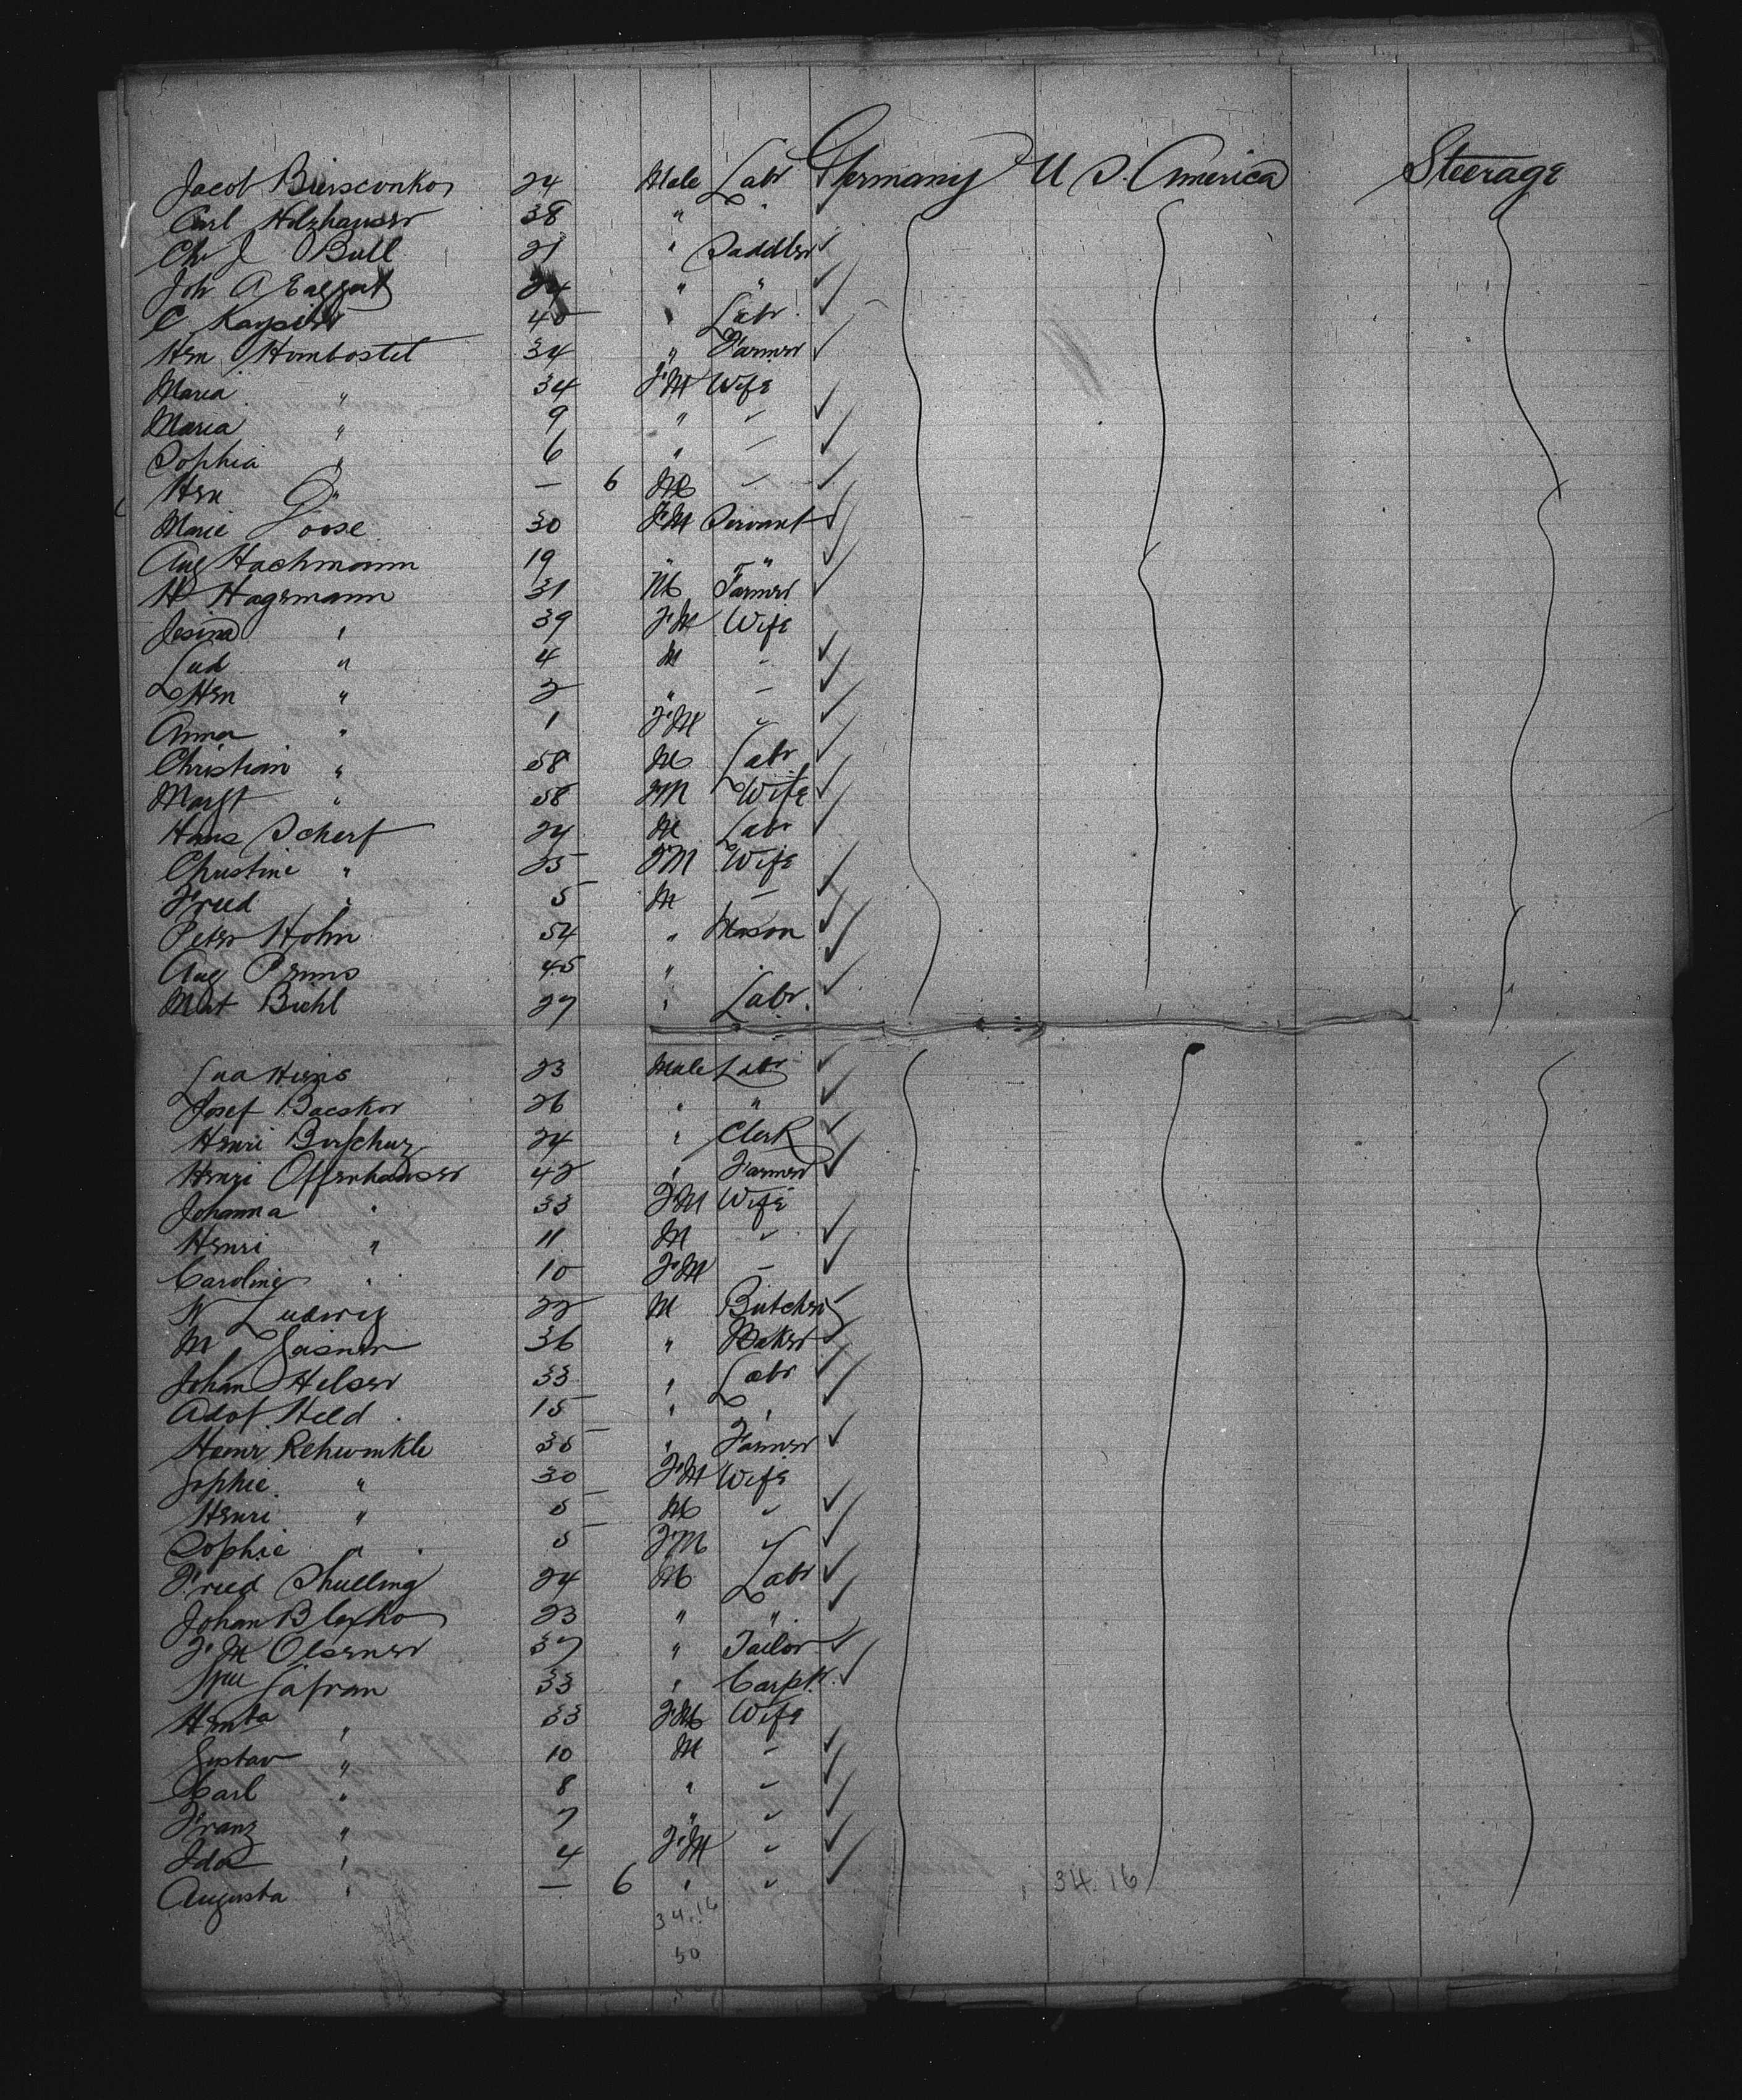 Jacob Biersconkos 24 Male Labr Germany U S. America Steerage
Carl Holzhauser 38 " "
Chr J Bull 21 " Saddler
Joh A Eaggert 24 " "
C. Kayser 40 " Labr
Hrn Hornbostel 34 " Farmer
Maria " 34 F.M Wife
Maria " 9 " -
Sophia " 6 " -
Hrn " - 6 M -
Marie Goose 30 F.M Servant
Aug Hachmann 19 " "
H Hagemann 31 M Farmer
Jesina " 39 F.M Wife
Lud " 4 M -
Hrn " 2 " -
Anna " 1 F.M -
Christian " 58 M Labr
Margt " 58 F.M Wife
Hans Scherf 24 M Labr
Christine " 25 F.M Wife
Fried " 5 M -
Peter Hohn 54 " Mason
Aug Prums 45 " "
Mat Biehl 27 " Labr.
23 Male Labr
Josef Bacskor 26 " "
Henri 24 " Clerk
Henri Offenhauser 42 " Farmer
Johanna " 33 F.M Wife
Henri " 11 M -
Caroline " 10 F.M -
N Ludwig 22 M Butcher
M Eisner 36 " Baker
Johan Helser 33 " Labr
Adof Held 15 " "
Henri Rehwinkle 35 " Farmer
Sophie " 30 F.M Wife
Henri " 5 M -
Sophie " 5 F.M -
Fried Shulling 24 M Labr
Johan Blasko 23 " "
F. M Olsener 37 " Tailor
Safran 33 " Carptr.
Henta " 33 F.M Wife
Gustav " 10 M -
Carl " 8 " -
Franz " 7 " -
Ida " 4 F.M -
Augusta " - 6 " - 34.16
34.16
50